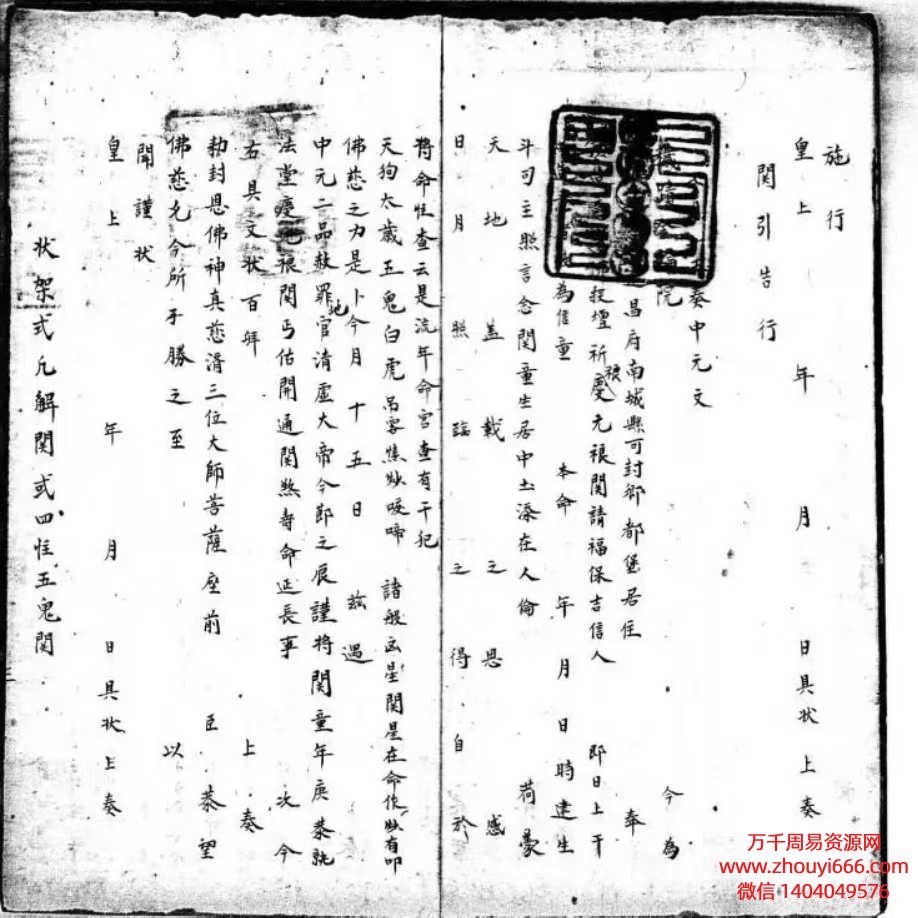 施行
皇上 年 月 日具状上奏
関引告行
奏中元文
院 今為
昌府南城縣可封鄉都堡居住 奉
投壇祈慶元禳関請福保吉信人 即日上干
為信童 本命 年 月 日時建生
斗司主照言念関童生居中土添在人倫 荷蒙
天地盖載之恩 感
日月照臨之得 自於
將命性查云是流年命宫查有干犯
天狗太歲五鬼白虎吊客 啼 諸般凶星関星在命作 有叩
佛慈之力是卜今月十五日 兹遇
中元二品赦罪地官清虛大帝今節之辰謹將関童年庚恭就
法堂 禳関丐佑開通関煞壽命延長事 次今
右具文状百拜 上奏
勅封恩佛神真慈濟三位大師菩薩座前 臣恭望
佛慈允今所 勝之至 以
聞謹状
皇上 年 月 日具状上奏
状架式凡解関或四性五鬼関
万千周易资源网
www.zhouyi666.com
微信1404049576